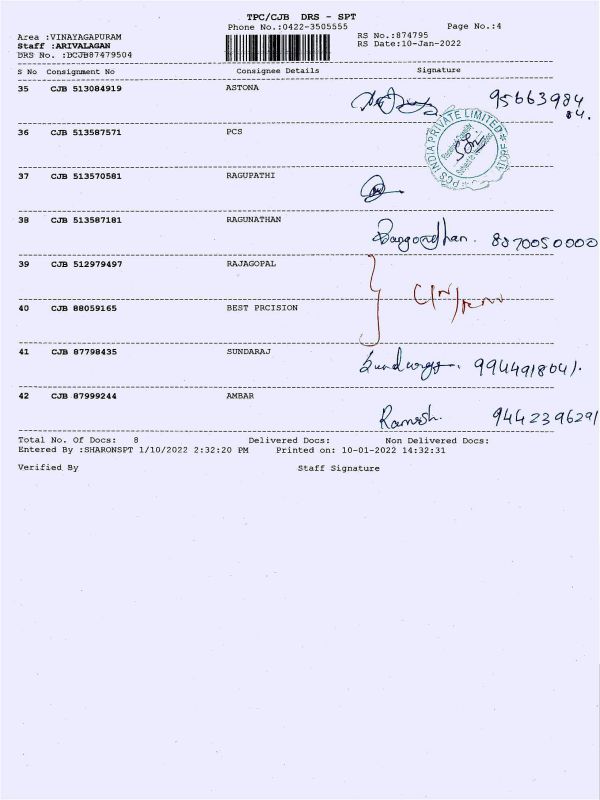 TPC/CJB DRS - SPT
Phone No.:0422-3505555 Page No.:4
Area :VINAYAGAPURAM RS No.:874795
Staff :ARIVALAGAN RS Date:10-Jan-2022
DRS No. :DCJB87479504
S No Consignment No Consignee Details Signature
35 CJB 513084919 ASTONA 95663984
84.
36 CJB 513587571 PCS
PCS INDIA PRIVATE LIMITED
37 CJB 513570581 RAGUPATHI
38 CJB 513587181 RAGUNATHAN 8870050000
39 CJB 512979497 RAJAGOPAL
40 CJB 88059165 BEST PRCISION
41 CJB 87798435 SUNDARAJ 9944918041.
42 CJB 87999244 AMBAR Ramesh. 9442396291
Total No. Of Docs: 8 Delivered Docs: Non Delivered Docs:
Entered By :SHARONSPT 1/10/2022 2:32:20 PM Printed on: 10-01-2022 14:32:31
Verified By Staff Signature